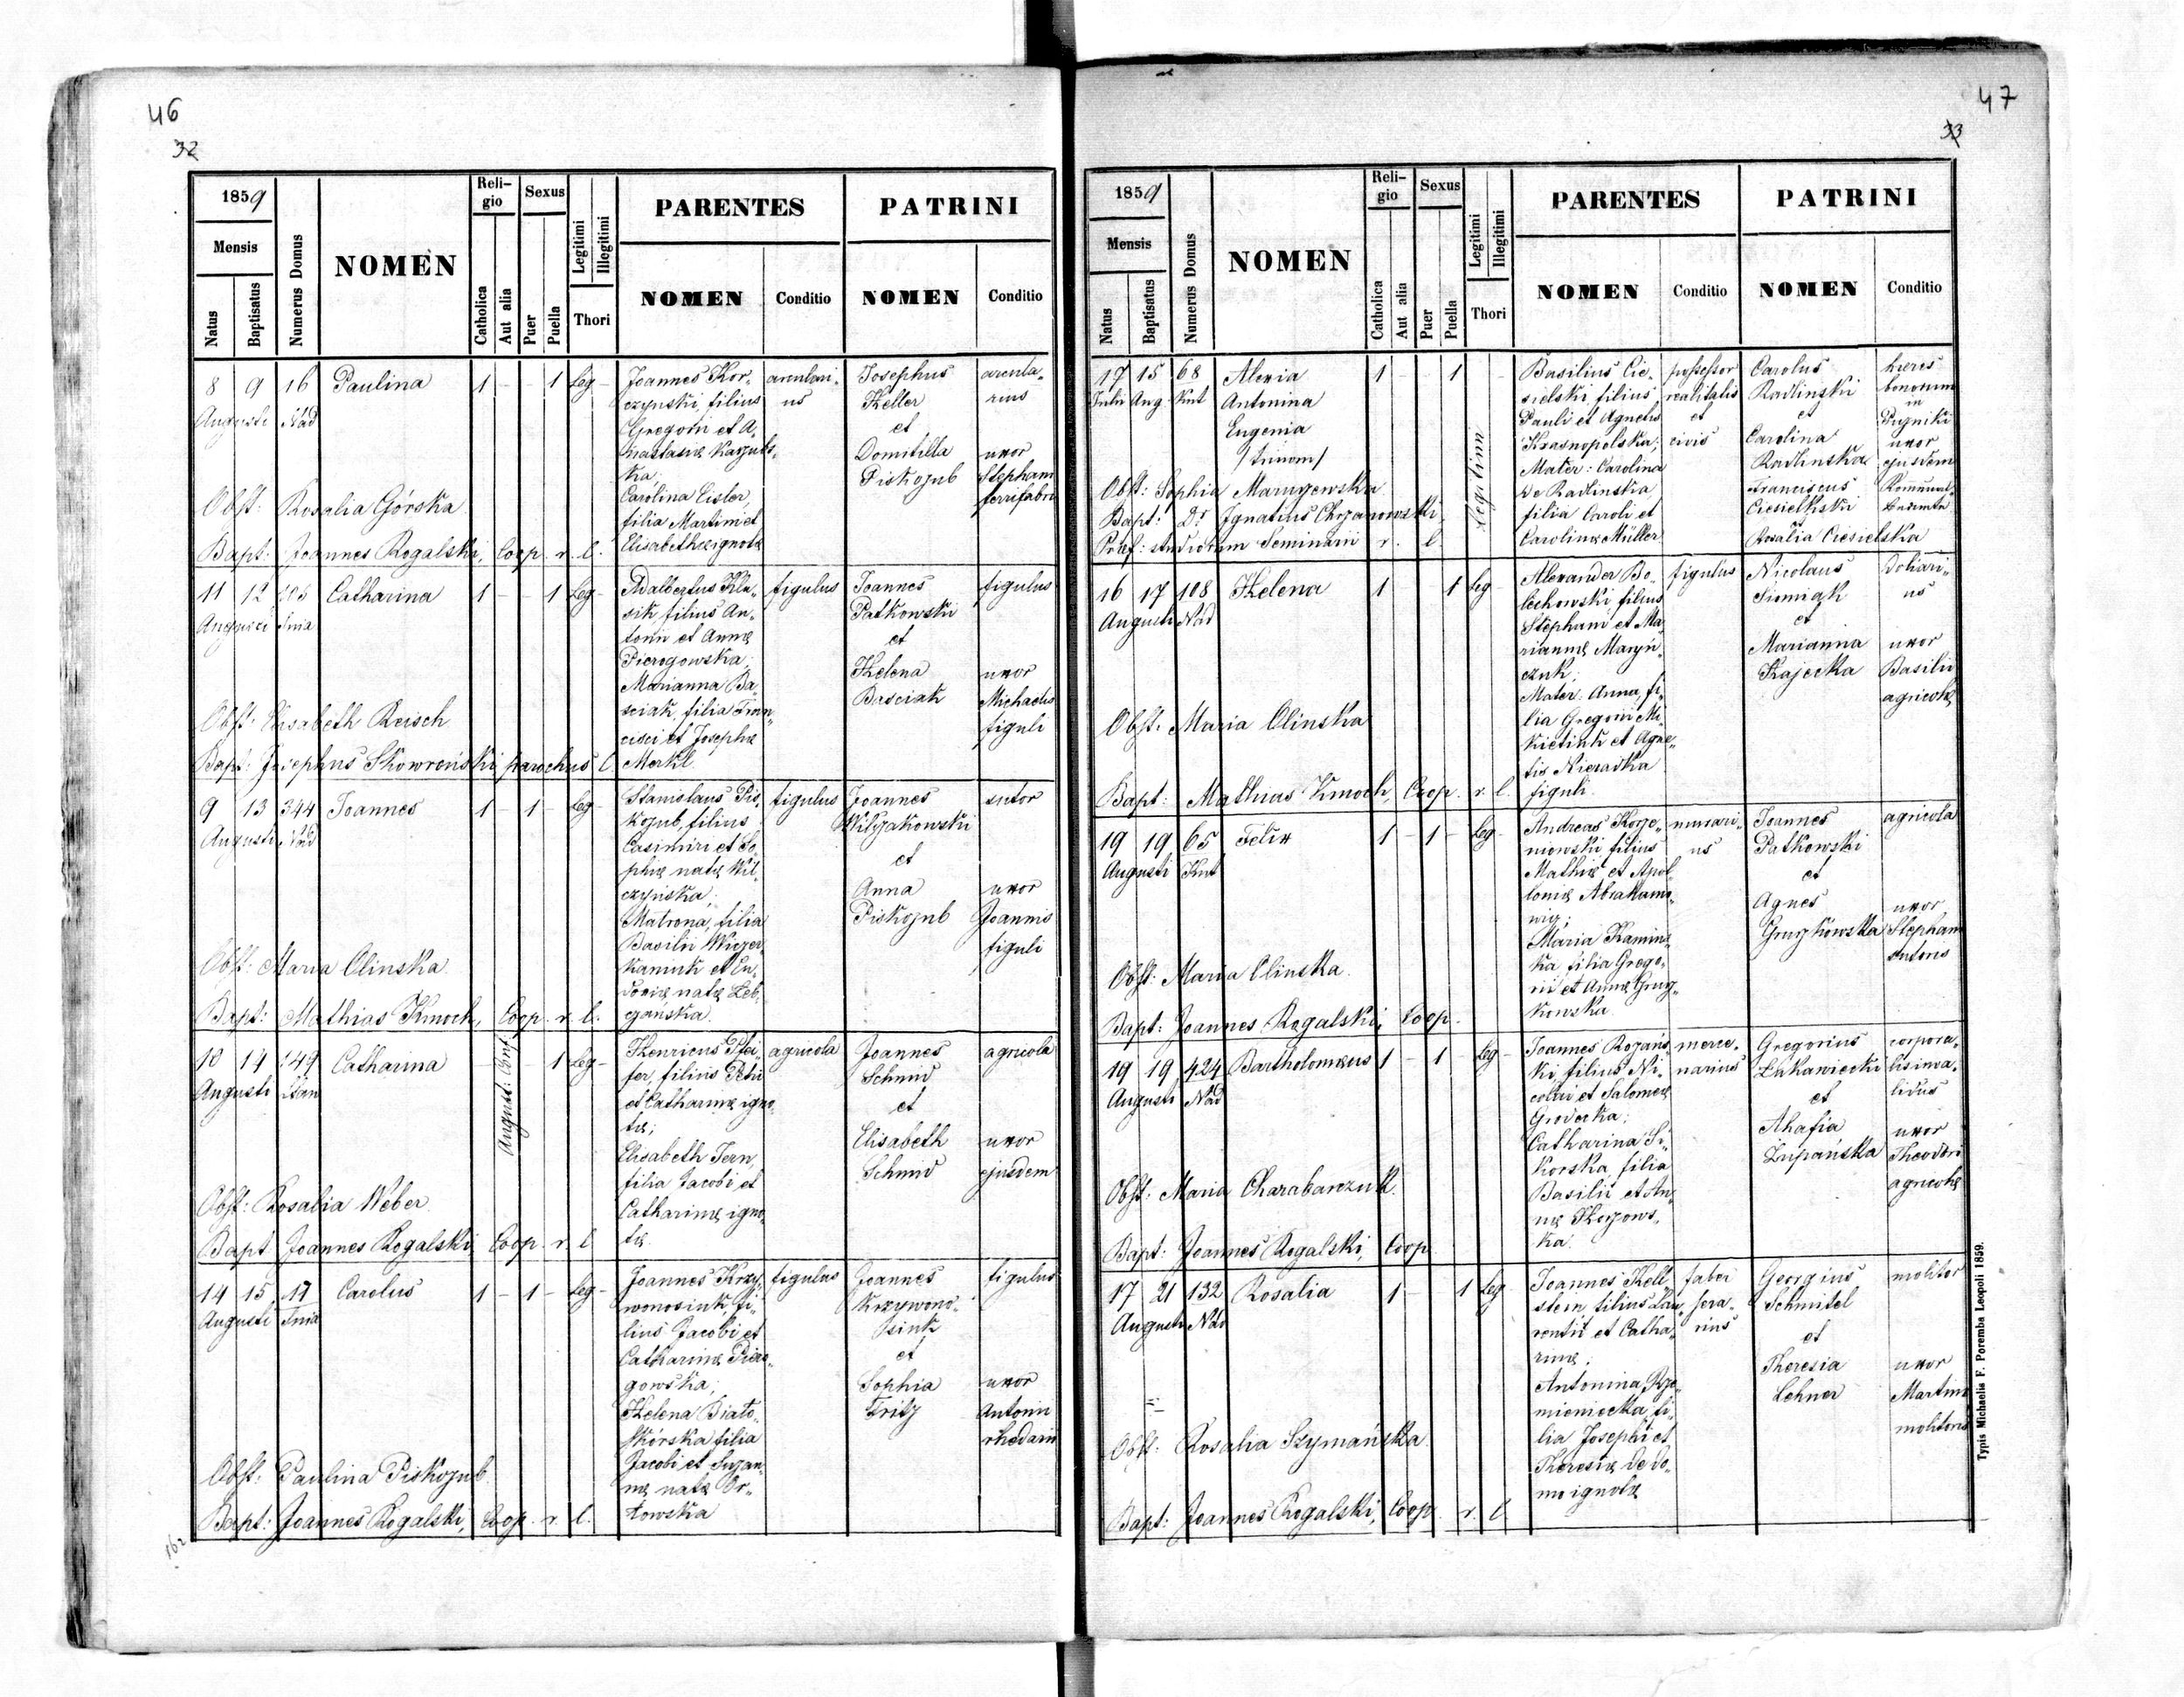 46
32
1859
Mensis
Natus
Baptisatus
Numerus Domus
NOMEN
Reli-
gio
Catholica
Aut alia
Sexus
Puer
Puella
Legitimi
Illegitimi
Thori
PARENTES
NOMEN
Conditio
PATRINI
NOMEN
Conditio
8 9 16 Paulina 1 - - 1 Leg -
Augusti Nád
Joannes Kor-
czynski, filius
Gregorii et A-
nastasiæ
ka;
Carolina Eisler,
filia Martini et
Elisabethæ ignotæ
Josephus
Keller
et
Domitilla
Piskozub
uxor
Stephani
ferrifabri
Obst: Rosalia Górska
Bapt: Joannes Rogalski, Coop. r. l.
11 12 Catharina 1 - - 1 Leg -
Augusti
Adalbertus Kla-
sik, filius An-
tonii et Annæ
Pierogowska;
Marianna Ba-
sciak, filia Fran-
cisci et Josephæ
Merkl
figulus
Joannes
Patkowski
et
Helena
Basciak
figulus
uxor
Michaelis
figuli
Obst: Elisabeth Reisch
Bapt: Josephus Skowroński parochus l.
9 13 344 Joannes 1 - 1 - Leg -
Augusti Nád
Stanislaus Pis-
kozub, filius
Casimiri et So-
phiæ natæ Wil-
czyńska;
Matrona, filia
Basilii
kaniuk et Eu-
doxiæ, natæ Leb-
figulus
Joannes
et
Anna
Piskozub
sutor
uxor
Joannis
figuli
Obst: Maria Olinska
Bapt: Mathias Kmoch, Coop. r. l.
10 14 149 Catharina August: Conf. 1 Leg -
Augusti
Henricus Pfei-
fer, filius Petri
et Catharinæ igno-
tæ;
Elisabeth Jern,
filia Jacobi et
Catharinæ igno-
tæ.
agricola
Joannes
Schmid
et
Elisabeth
Schmid
agricola
uxor
ejusdem
Obst: Rosalia Weber
Bapt Joannes Rogalski Coop. r. l
14 15 17 Carolus 1 - 1 - Leg -
Augusti
Joannes Krzy-
wonosiuk, fi-
lius Jacobi et
Catharinæ Piero-
gowska;
Helena Biało-
skórska filia
Jacobi et Suzan-
næ natæ Or-
łowska
figulus
Joannes
Krzywono-
siuk
et
Sophia
Fritz
figulus
uxor
Antonii
rhedarii
Obst: Paulina Piskozub
Bapt: Joannes Rogalski, Coop. r. l.
162
47
33
1859
Mensis
Natus
Baptisatus
Numerus Domus
NOMEN
Reli-
gio
Catholica
Aut alia
Sexus
Puer
Puella
Legitimi
Illegitimi
Thori
PARENTES
NOMEN
Conditio
PATRINI
NOMEN
Conditio
17 15 68 Alexia 1 - - 1
Julii Aug. Kut Antonina
Eugenia
/trinom/
Legitim
Basilius Cie-
sielski filius
Pauli et Agnetis
Krasnopolska;
Mater: Carolina
de Radlinskia
filia Caroli et
Carolinæ Müller
possessor
realitatis
et
civis
Carolus
Radlinski
et
Carolina
Radlinska
Franciscus
Ciesielski
et
Rosalia Ciesielska
heres
bonorum
in
uxor
ejusdem
Obst: Sophia
Bapt: Dr Ignatius Chrzanowski,
Præf: studiorum Seminarii r. l.
16 17 108 Helena 1 1 Leg -
Augusti Nád
Alexander Bo-
lechowski, filius
Stephani et Ma-
riannæ Maryń-
czuk;
Mater: Anna, fi-
lia Gregorii Mi-
kietiuk et Agne-
tis Nieradka
figuli.
figulus
Nicolaus
Siemiąk
et
Marianna
Kajecka
doliari-
us
uxor
Basilii
agricolæ
Obst: Maria Olinska
Bapt: Mathias Kmoch, Coop. r. l.
19 19 65 Felix 1 - 1 - Leg -
Augusti Kut
Andreas Korze-
niowski filius
Mathiæ et Apol-
loniæ Abrahamo-
wicz;
Maria Kamins-
ka, filia Grego-
rii et Annæ Grusz-
kowska
murari-
us
Joannes
Patkowski
et
Agnes
Gruszkowska
agricola
uxor
Stephani
sutoris
Obst: Maria Olinska.
Bapt: Joannes Rogalski, Coop.
19 19 424 Bartholomæus 1 - 1 - Leg -
Augusti Nád
Joannes Rozańs-
ki, filius Ni-
colai et Salomeæ
Grodecka;
Catharina Si-
korska, filia
Basilii et An-
næ
ka.
merce-
narius
Gregorius
et
Ahafia
Zupańska
corpora-
lis inva-
lidus
uxor
Theodori
agricolæ
Obst: Maria Charabarczuk.
Bapt: Joannes Rogalski, Coop
17 21 132 Rosalia 1 - 1 Leg
Augusti Nád
Joannes Hell-
stein, filius Lau-
rentii et Catha-
rinæ;
Antonina
mieniecka, fi-
lia Josephi et
Theresiæ de do-
mo ignotæ
faber
sera-
rius
Georgius
Schmitel
et
Theresia
Lehner
molitor
uxor
Martini
molitoris
Obst: Rosalia Szymańska
Bapt: Joannes Rogalski, Coop. r. l
Typis Michaelis F. Poremba Leopoli 1859.